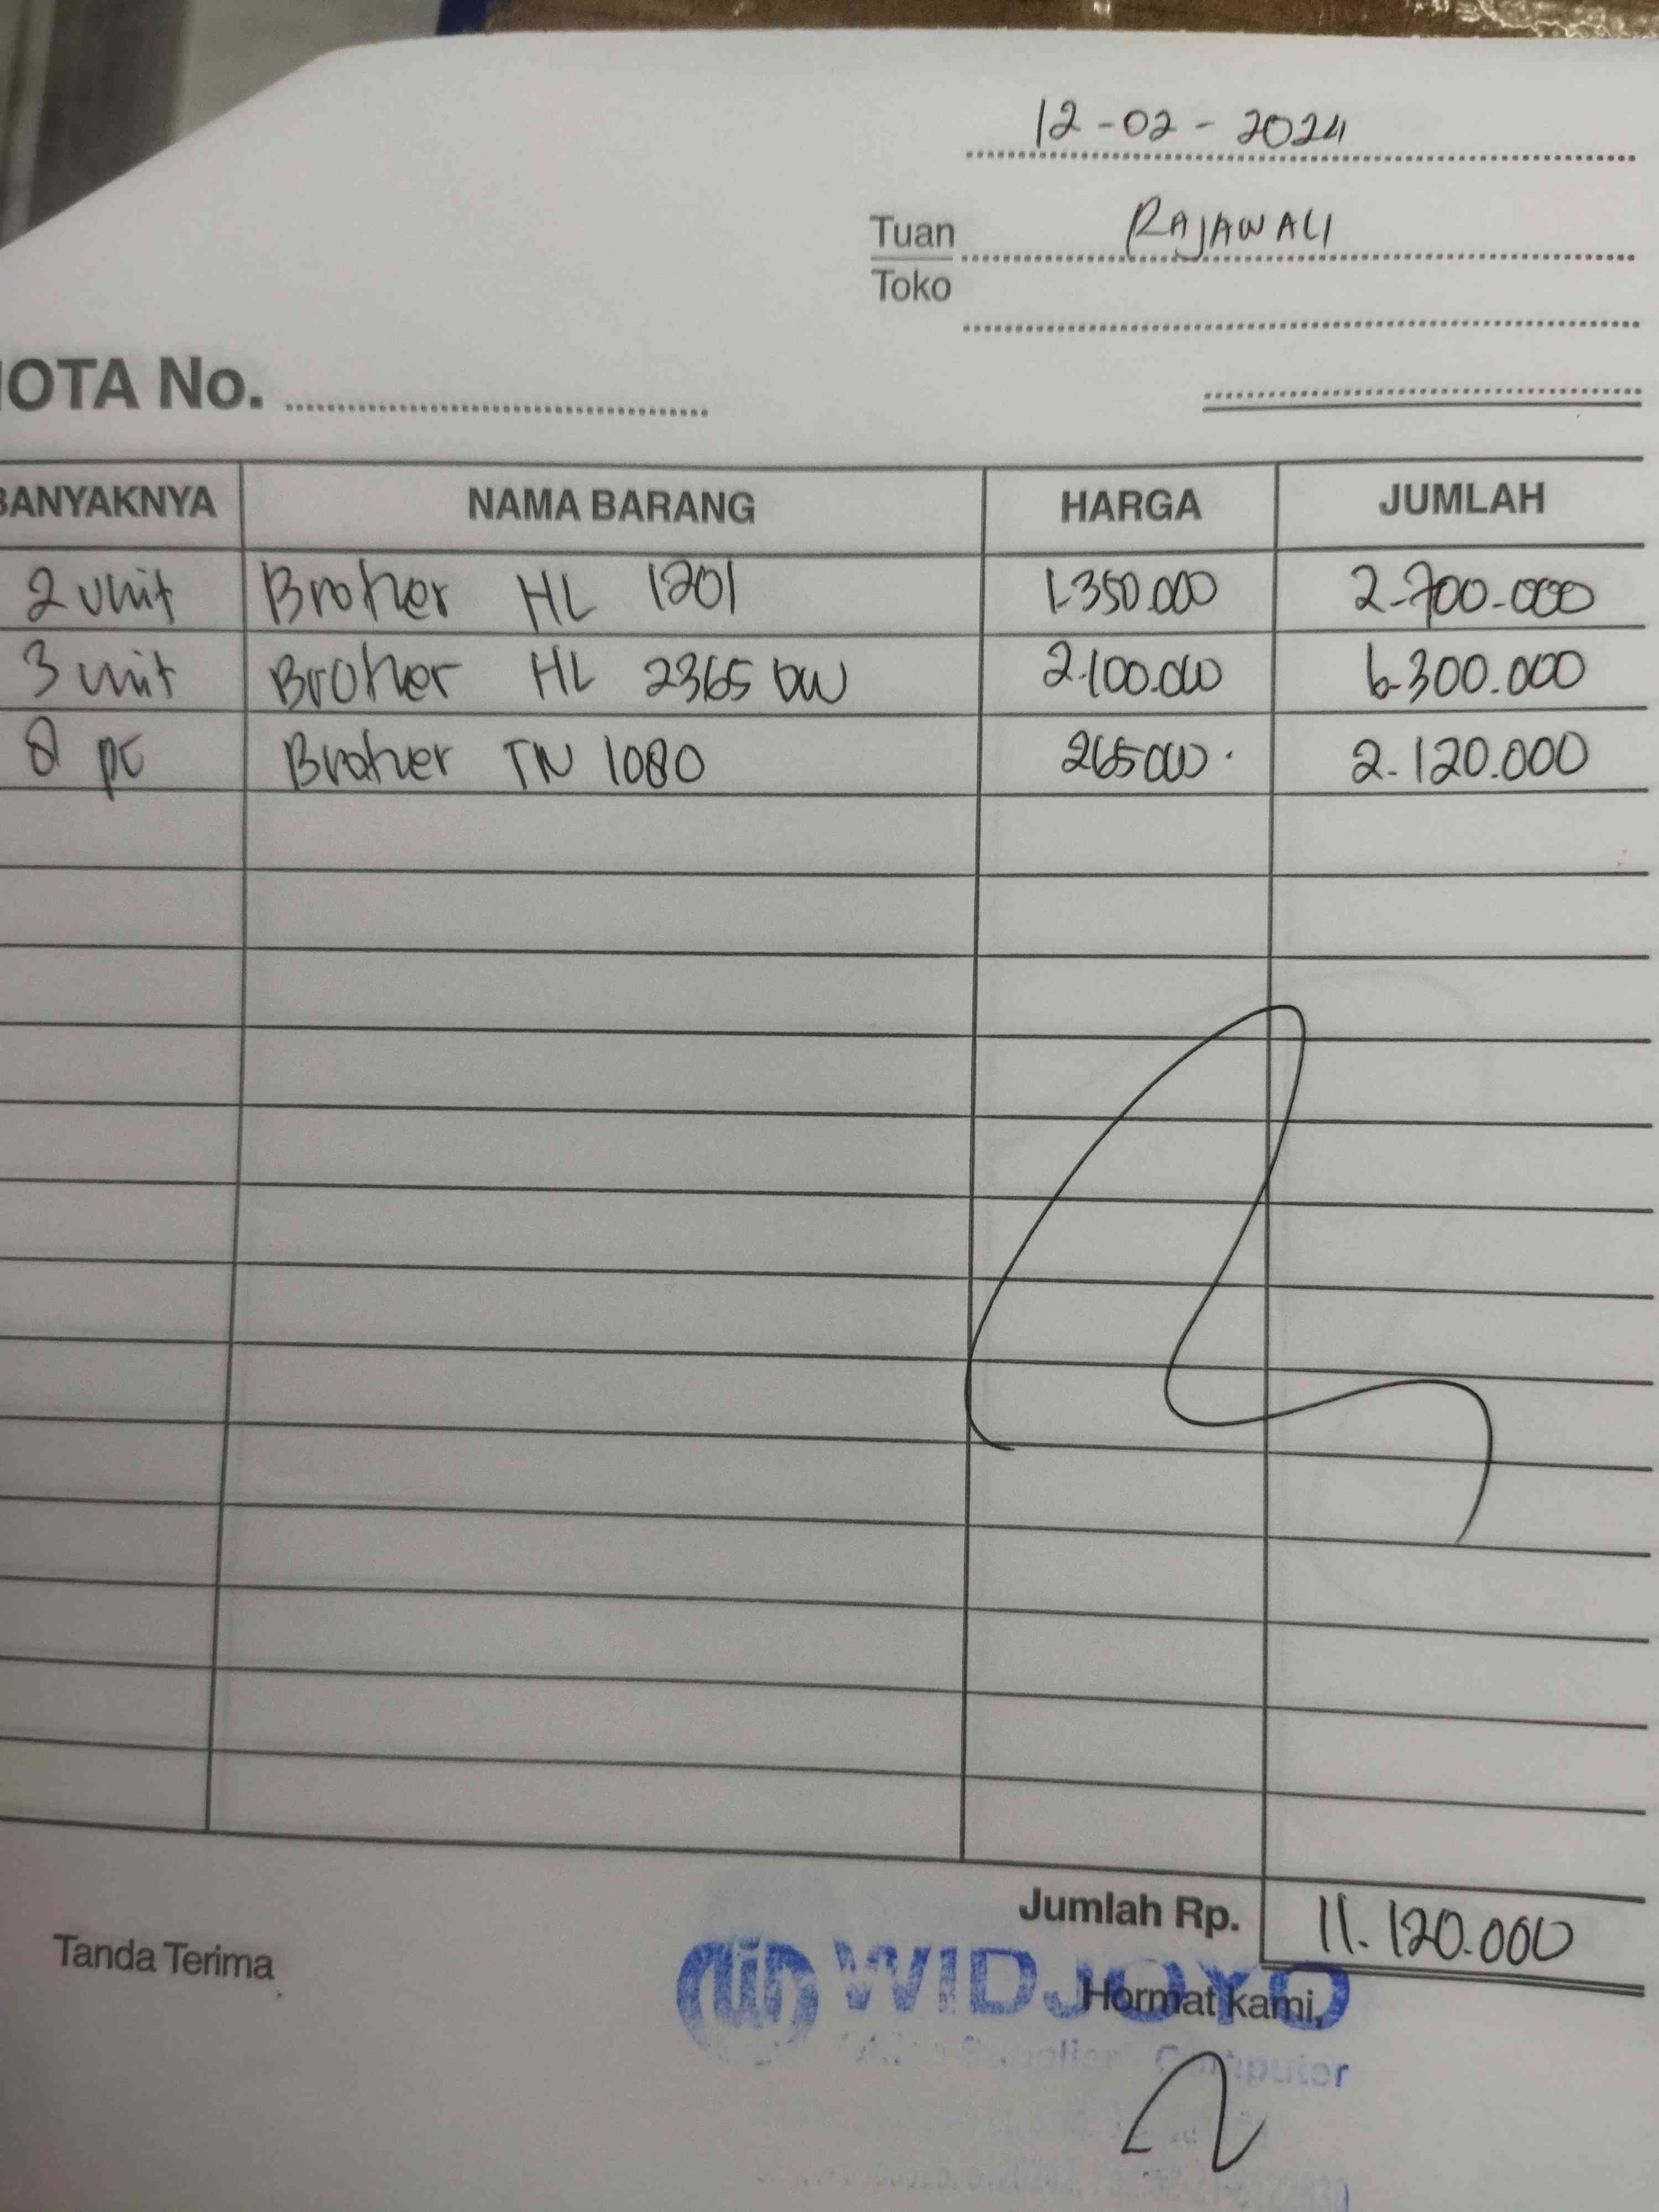 12-02-2024
Tuan RAJAWALI
Toko
OTA No.
BANYAKNYA NAMA BARANG HARGA JUMLAH
2 unit Brother HL 1201 1.350.000 2.700.000
3 unit Brother HL 2365 DW 2.100.000 6.300.000
8 pc Brother TN 1080 265000. 2.120.000
Jumlah Rp. 11.120.000
Tanda Terima
WIDJOYO
Hormat kami,
Computer